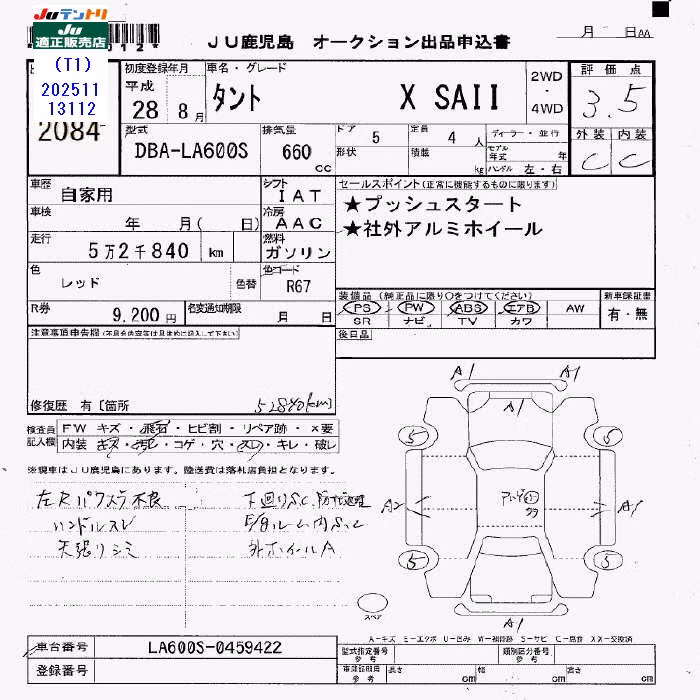 Juテントリ
Ju
適正販売店
(T1)
202511
13112
2084
JU鹿児島 オークション出品申込書
月 日AA
初度登録年月
平成
28 8月
車名・グレード
タント X SAII
2WD
・
4WD
評価点
3.5
外装 内装
C C
型式
DBA-LA600S
排気量
660 cc
ドア 5
形状
定員 4 人
積載 kg
ディーラー・並行
モデル年式 年
ハンドル 左・右
車歴
自家用
シフト
IAT
車検
年 月( 日)
冷房
AAC
走行
5万2千840 km
燃料
ガソリン
色
レッド
色替
色コード
R67
R券
9,200円
名変通知期限
月 日
セールスポイント(正常に機能するものに限ります)
★プッシュスタート
★社外アルミホイール
装備品(純正品に限り○をつけてください)
PS PW ABS エアB AW
SR ナビ TV カワ
新車保証書
有・無
後日品
注意事項申告欄(不具合内容等は具体的に記入して下さい)
修復歴 有[箇所
52840(km)
検査員記入欄
FW キズ・飛石・ヒビ割・リペア跡・×要
内装・キズ・汚レ・コゲ・穴・スレ・キレ・破レ
※現車はJU鹿児島にあります。陸送費は落札店負担となります。
左Rパワスラ不良
ハンドルスレ
天張リシミ
下廻りS.C.
外ホイールA
A1 A1 A1
5 5
A2 A1
5 5
A1
スペア
A-キズ E-エクボ U-凹み W-補修跡 S-サビ C-腐蝕 XX-交換済
車台番号
LA600S-0459422
登録番号
型式指定番号
参考
類別区分番号
参考
車両説明用
参考
長さ cm
幅 cm
高さ cm